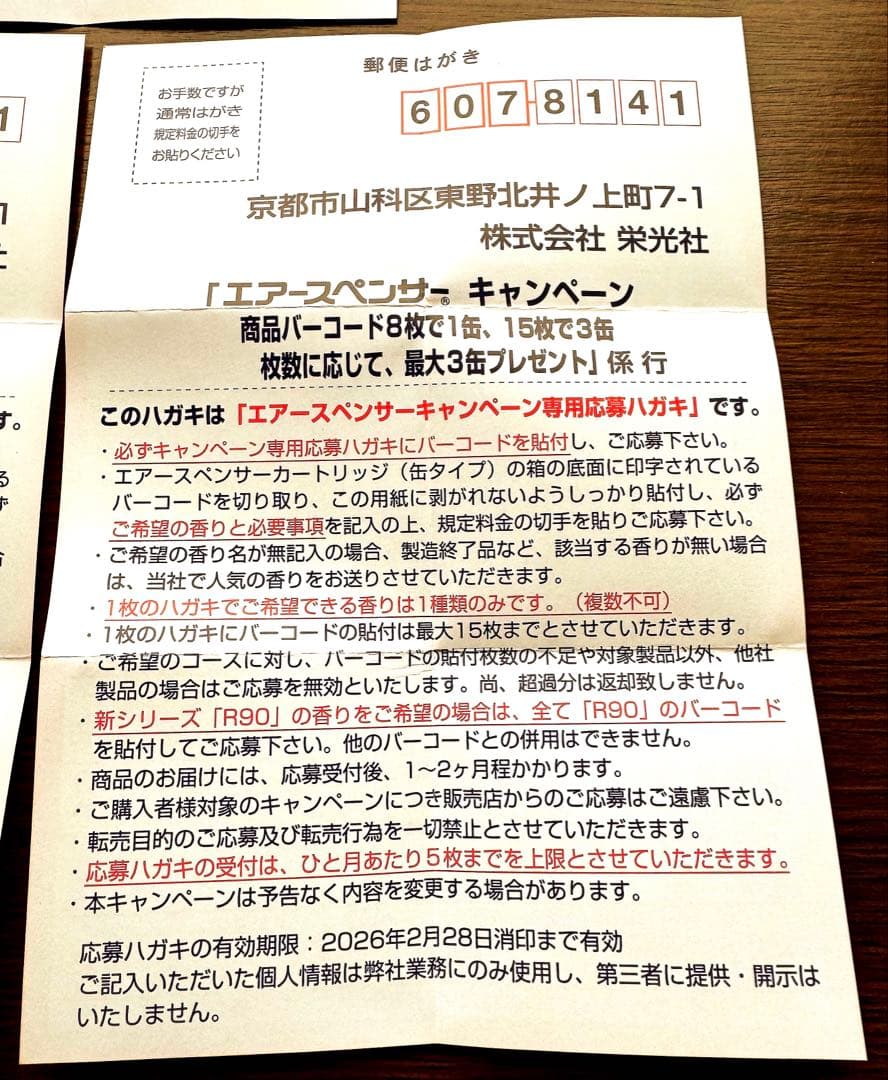 郵便はがき
お手数ですが
通常はがき
規定料金の切手を
お貼りください
6078141
京都市山科区東野北井ノ上町7-1
株式会社 栄光社
「エアースペンサー® キャンペーン
商品バーコード8枚で1缶、15枚で3缶
枚数に応じて、最大3缶プレゼント」係 行
このハガキは「エアースペンサーキャンペーン専用応募ハガキ」です。
・必ずキャンペーン専用応募ハガキにバーコードを貼付し、ご応募下さい。
・エアースペンサーカートリッジ（缶タイプ）の箱の底面に印字されている
バーコードを切り取り、この用紙に剥がれないようしっかり貼付し、必ず
ご希望の香りと必要事項を記入の上、規定料金の切手を貼りご応募下さい。
・ご希望の香り名が無記入の場合、製造終了品など、該当する香りが無い場合
は、当社で人気の香りをお送りさせていただきます。
・1枚のハガキでご希望できる香りは1種類のみです。（複数不可）
・1枚のハガキにバーコードの貼付は最大15枚までとさせていただきます。
・ご希望のコースに対し、バーコードの貼付枚数の不足や対象製品以外、他社
製品の場合はご応募を無効といたします。尚、超過分は返却致しません。
・新シリーズ「R90」の香りをご希望の場合は、全て「R90」のバーコード
を貼付してご応募下さい。他のバーコードとの併用はできません。
・商品のお届けには、応募受付後、1〜2ヶ月程かかります。
・ご購入者様対象のキャンペーンにつき販売店からのご応募はご遠慮下さい。
・転売目的のご応募及び転売行為を一切禁止とさせていただきます。
・応募ハガキの受付は、ひと月あたり5枚までを上限とさせていただきます。
・本キャンペーンは予告なく内容を変更する場合があります。
応募ハガキの有効期限：2026年2月28日消印まで有効
ご記入いただいた個人情報は弊社業務にのみ使用し、第三者に提供・開示は
いたしません。
1
1
す。